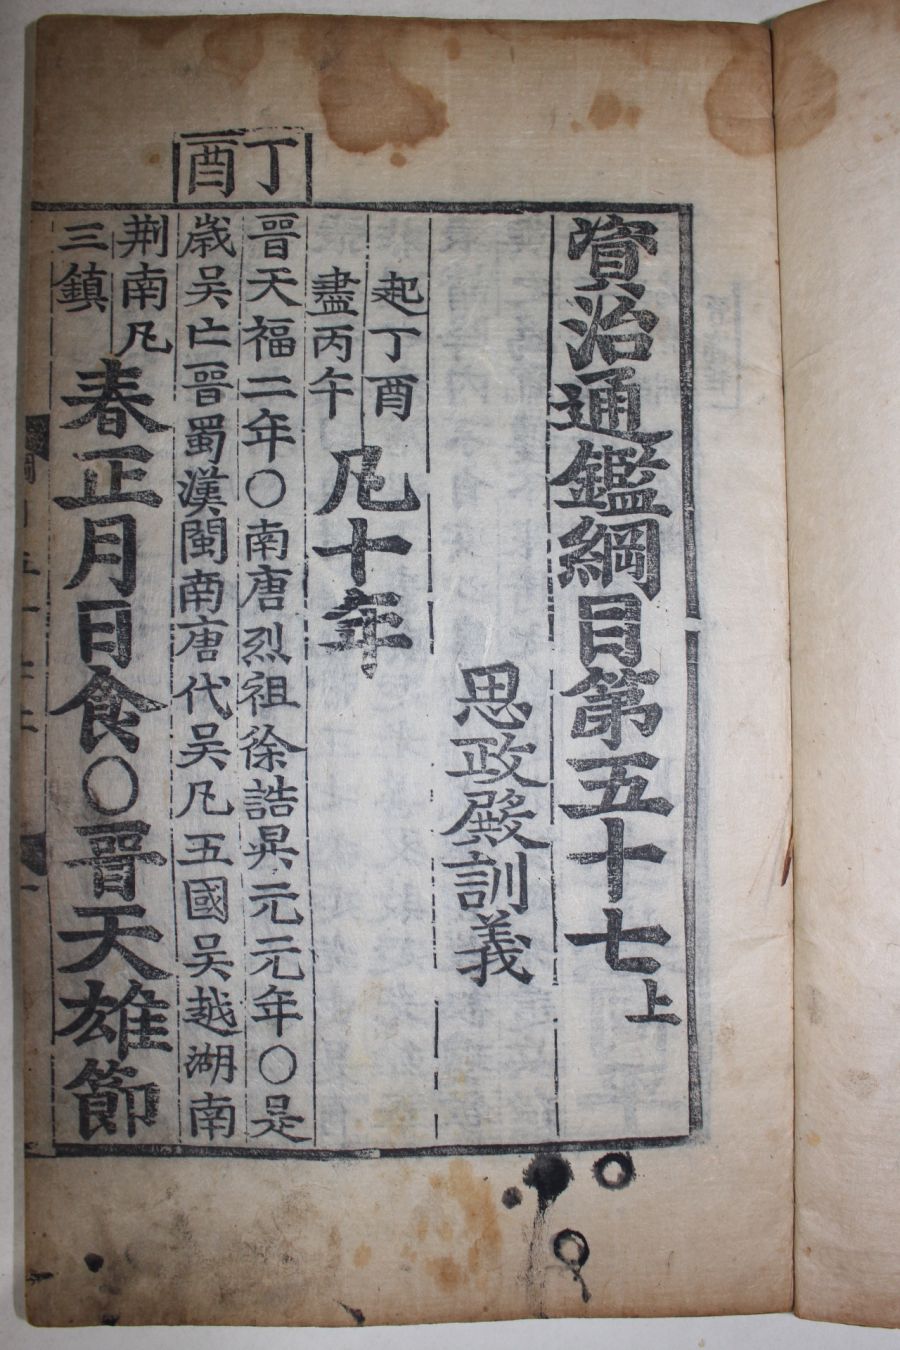 資治通鑑綱目第五十七上
思政殿訓義
起丁酉
盡丙午
凡十年
丁酉
晉天福二年〇南唐烈祖徐誥昪元元年〇是
歲吳亡晉蜀漢閩南唐代吳凡五國吳越湖南
荆南凡
三鎮
春正月日食〇晉天雄節